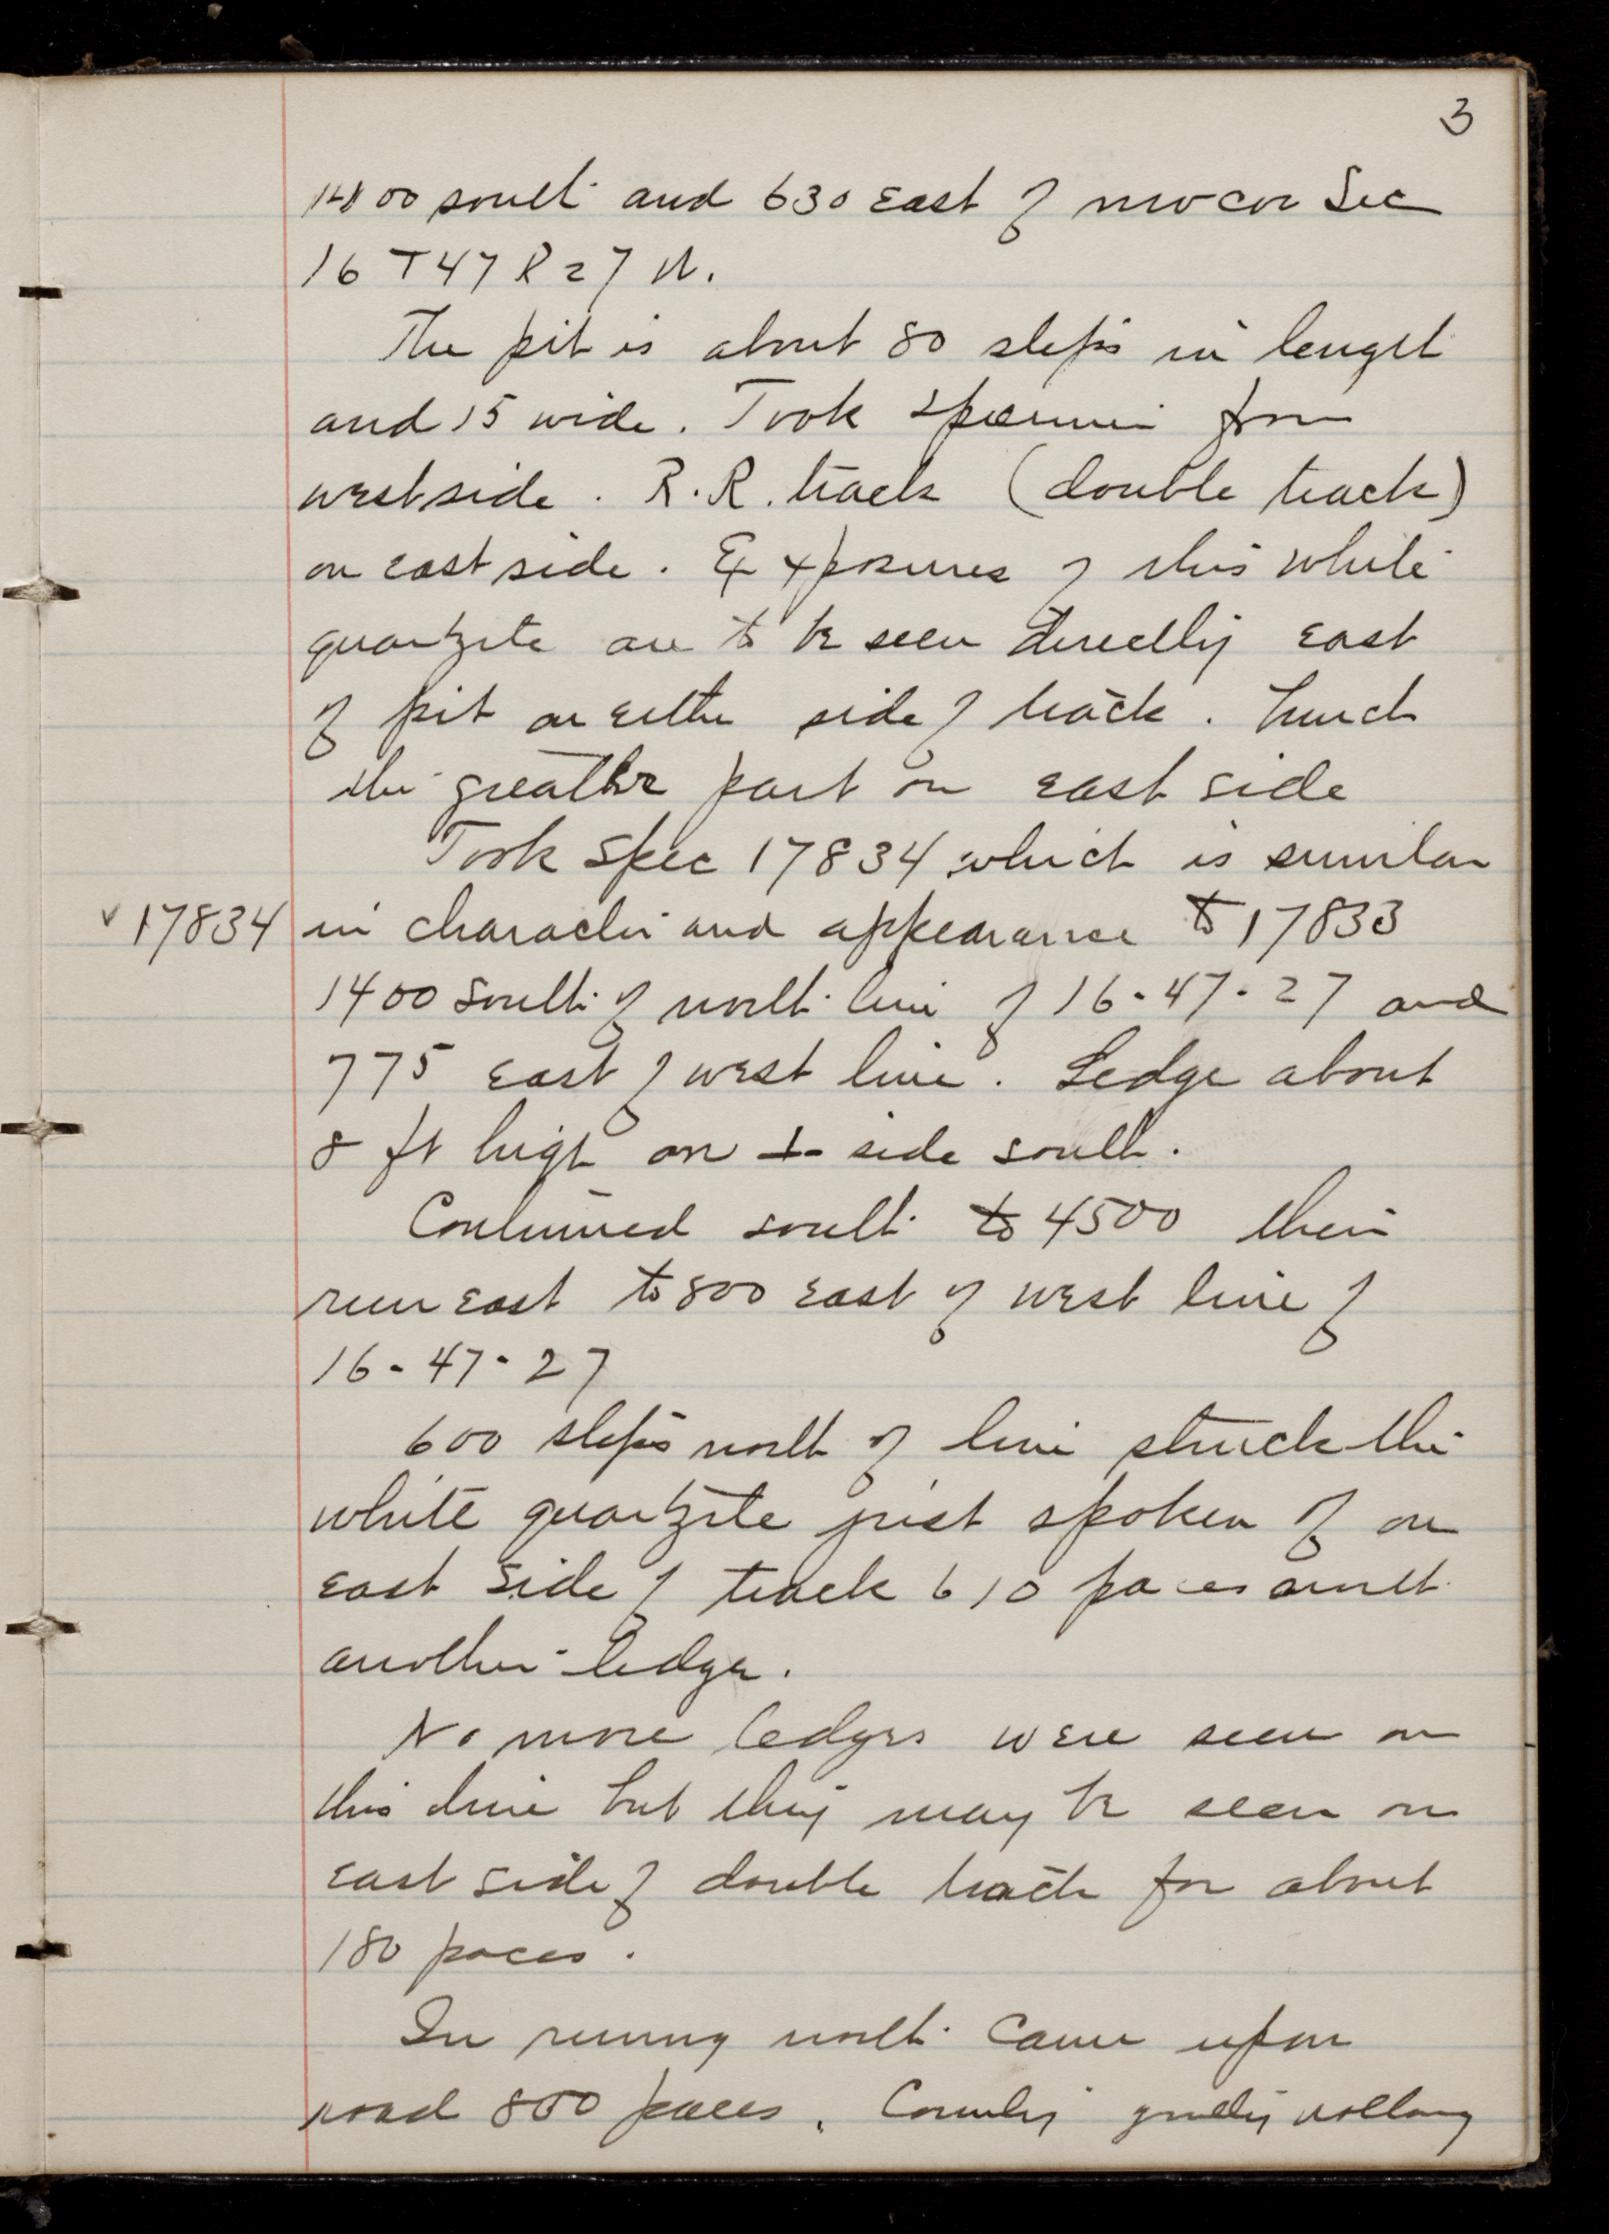 3
1400 south and 630 east of nw cor Sec
16 T 47 R 27 W.
The pit is about 80 steps in length
and 15 wide. Took specimen from
west side. R.R. track (double track)
on east side. Exposures of this white
quartzite are to be seen directly east
of pit on either side of track. Much
the greater part on east side
Took Spec 17834 which is similar
17834 in character and appearance to 17833
1400 south of north line of 16-47-27 and
775 east of west line. Ledge about
8 ft high on side south.
Continued south to 4500 then
run east to 800 east of west line of
16-47-27
600 steps north of line struck the
white quartzite just spoken of on
east side of track 610 paces north
another ledge.
No more ledges were seen on
this line but they may be seen on
east side of double track for about
180 paces.
In runng north came upon
road 800 paces. Country gently rolling